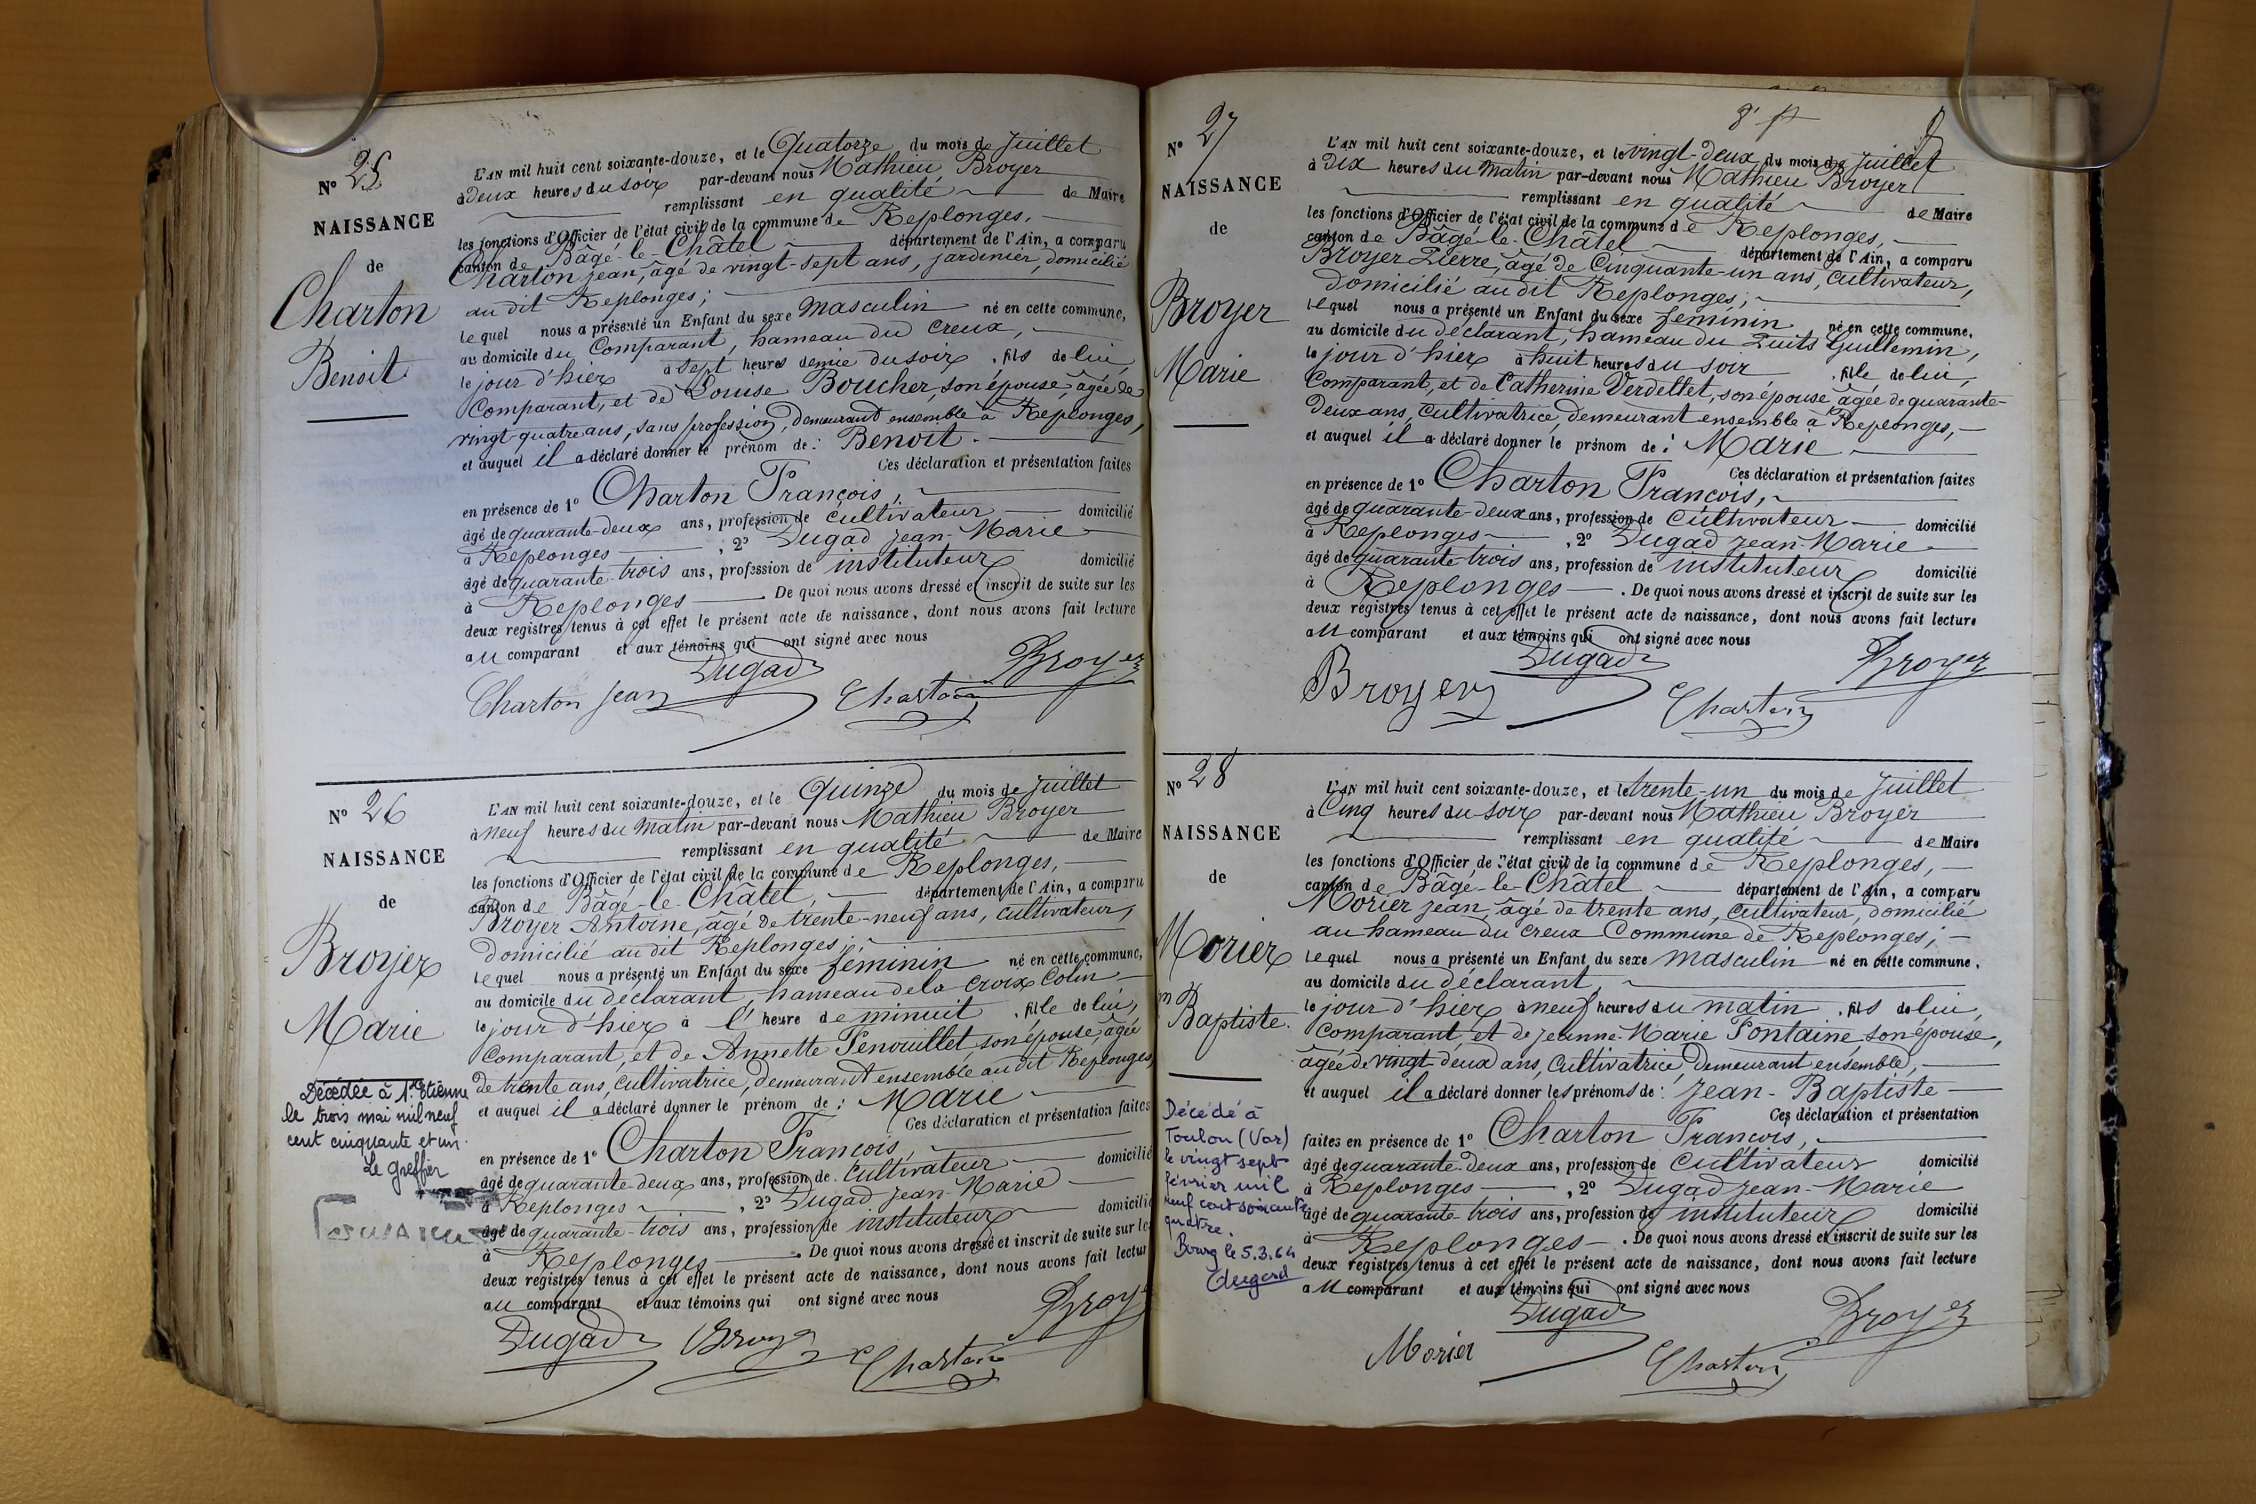 N° 25
NAISSANCE
de
Charton
Benoit
L'AN mil huit cent soixante-douze, et le Quatorze du mois de Juillet
à deux heures du soir par-devant nous Mathieu Broyer
remplissant en qualité de Maire
les fonctions d'Officier de l'état civil de la commune de Replonges,
canton de Bâgé-le-Châtel département de l'Ain, a comparu
Charton Jean, âgé de vingt-sept ans, jardinier, domicilié
au dit Replonges;
lequel nous a présenté un Enfant du sexe masculin né en cette commune,
au domicile du Comparant, hameau du Creux,
le jour d'hier à sept heures demie du soir, fils de lui,
Comparant, et de Louise Boucher, son épouse, âgée de
vingt-quatre ans, sans profession, demeurant ensemble à Replonges,
et auquel il a déclaré donner le prénom de: Benoit.
Ces déclaration et présentation faites
en présence de 1° Charton François,
âgé de quarante-deux ans, profession de cultivateur domicilié
à Replonges, 2° Dugad Jean-Marie
âgé de quarante-trois ans, profession de instituteur domicilié
à Replonges. De quoi nous avons dressé et inscrit de suite sur les
deux registres tenus à cet effet le présent acte de naissance, dont nous avons fait lecture
au comparant et aux témoins qui ont signé avec nous
Charton Jean Dugad Charton Broyer
N° 26
NAISSANCE
de
Broyer
Marie
Décédée à St Etienne
le trois mai mil neuf
cent cinquante et un.
Le greffier
L'AN mil huit cent soixante-douze, et le Quinze du mois de Juillet
à neuf heures du matin par-devant nous Mathieu Broyer
remplissant en qualité de Maire
les fonctions d'Officier de l'état civil de la commune de Replonges,
canton de Bâgé-le-Châtel, département de l'Ain, a comparu
Broyer Antoine, âgé de trente-neuf ans, cultivateur,
domicilié au dit Replonges;
lequel nous a présenté un Enfant du sexe féminin né en cette commune,
au domicile du déclarant, hameau de la Croix Colin
le jour d'hier à l'heure de minuit, fille de lui,
Comparant, et de Annette Penouillet son épouse, âgée
de trente ans, cultivatrice, demeurant ensemble au dit Replonges,
et auquel il a déclaré donner le prénom de: Marie
Ces déclaration et présentation faites
en présence de 1° Charton François,
âgé de quarante deux ans, profession de Cultivateur domicilié
à Replonges, 2° Dugad Jean-Marie
âgé de quarante-trois ans, profession de instituteur domicilié
à Replonges. De quoi nous avons dressé et inscrit de suite sur les
deux registres tenus à cet effet le présent acte de naissance, dont nous avons fait lectur
au comparant et aux témoins qui ont signé avec nous
Dugad Broyer Charton Broye
N° 27
NAISSANCE
de
Broyer
Marie
L'AN mil huit cent soixante-douze, et le vingt-deux du mois de Juillet
à dix heures du matin par-devant nous Mathieu Broyer
remplissant en qualité de Maire
les fonctions d'Officier de l'état civil de la commune de Replonges,
canton de Bâgé-le-Châtel département de l'Ain, a comparu
Broyer Pierre, âgé de Cinquante-un ans, cultivateur,
domicilié au dit Replonges;
lequel nous a présenté un Enfant du sexe féminin né en cette commune,
au domicile du déclarant, hameau du Puits Guillemin,
le jour d'hier à huit heures du soir, fille de lui,
Comparant, et de Catherine Verdellet, son épouse âgée de quarante-
deux ans, cultivatrice, demeurant ensemble à Replonges,
et auquel il a déclaré donner le prénom de: Marie
Ces déclaration et présentation faites
en présence de 1° Charton François,
âgé de quarante-deux ans, profession de cultivateur domicilié
à Replonges, 2° Dugad Jean-Marie
âgé de quarante-trois ans, profession de instituteur domicilié
à Replonges. De quoi nous avons dressé et inscrit de suite sur les
deux registres tenus à cet effet le présent acte de naissance, dont nous avons fait lecture
au comparant et aux témoins qui ont signé avec nous
Broyer Dugad Charton Broyer
N° 28
NAISSANCE
de
Morier
Jn Baptiste.
Décédé à
Toulon (Var)
le vingt sept
février mil
neuf cent soixante
quatre.
Bourg le 5.3.64
L'AN mil huit cent soixante-douze, et le trente-un du mois de Juillet
à Cinq heures du soir par-devant nous Mathieu Broyer
remplissant en qualité de Maire
les fonctions d'Officier de l'état civil de la commune de Replonges,
canton de Bâgé-le-Châtel département de l'Ain, a comparu
Morier Jean, âgé de trente ans, cultivateur, domicilié
au hameau du Creux Commune de Replonges;
lequel nous a présenté un Enfant du sexe masculin né en cette commune,
au domicile du déclarant,
le jour d'hier à neuf heures du matin, fils de lui,
comparant, et de Jeanne-Marie Fontaine son épouse,
âgée de vingt deux ans, Cultivatrice, demeurant ensemble,
et auquel il a déclaré donner les prénoms de: Jean-Baptiste
Ces déclaration et présentation
faites en présence de 1° Charton François,
âgé de quarante-deux ans, profession de cultivateur domicilié
à Replonges, 2° Dugad Jean-Marie
âgé de quarante trois ans, profession de instituteur domicilié
à Replonges. De quoi nous avons dressé et inscrit de suite sur les
deux registres tenus à cet effet le présent acte de naissance, dont nous avons fait lecture
au comparant et aux témoins qui ont signé avec nous
Morier Dugad Charton Broyer